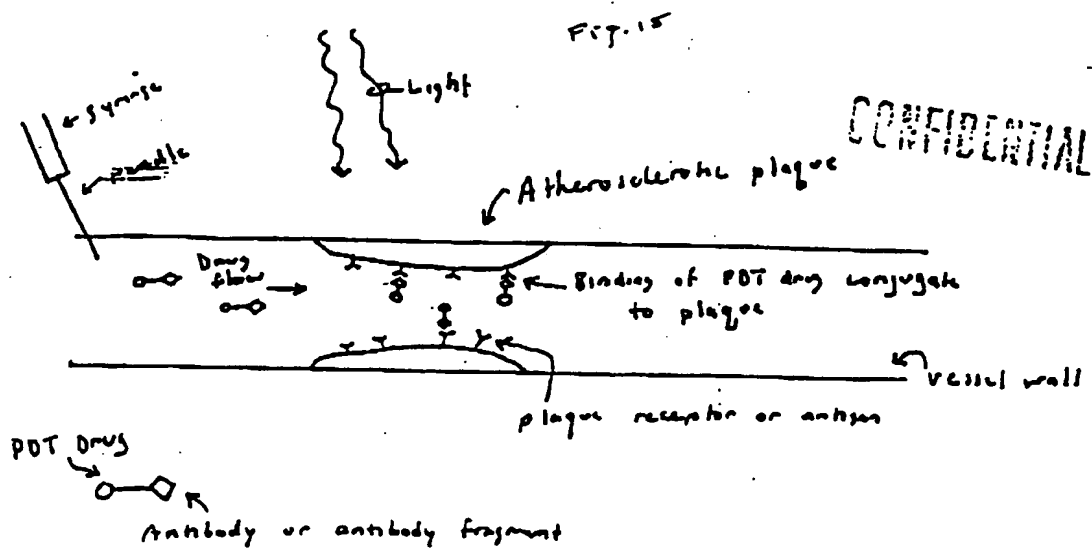 Fig. 15
Light
CONFIDENTIAL
Syringe
needle
Atherosclerotic plaque
Drug
flow
Binding of PDT drug conjugate
to plaque
vessel wall
plaque receptor or antigen
PDT Drug
Antibody or antibody fragment